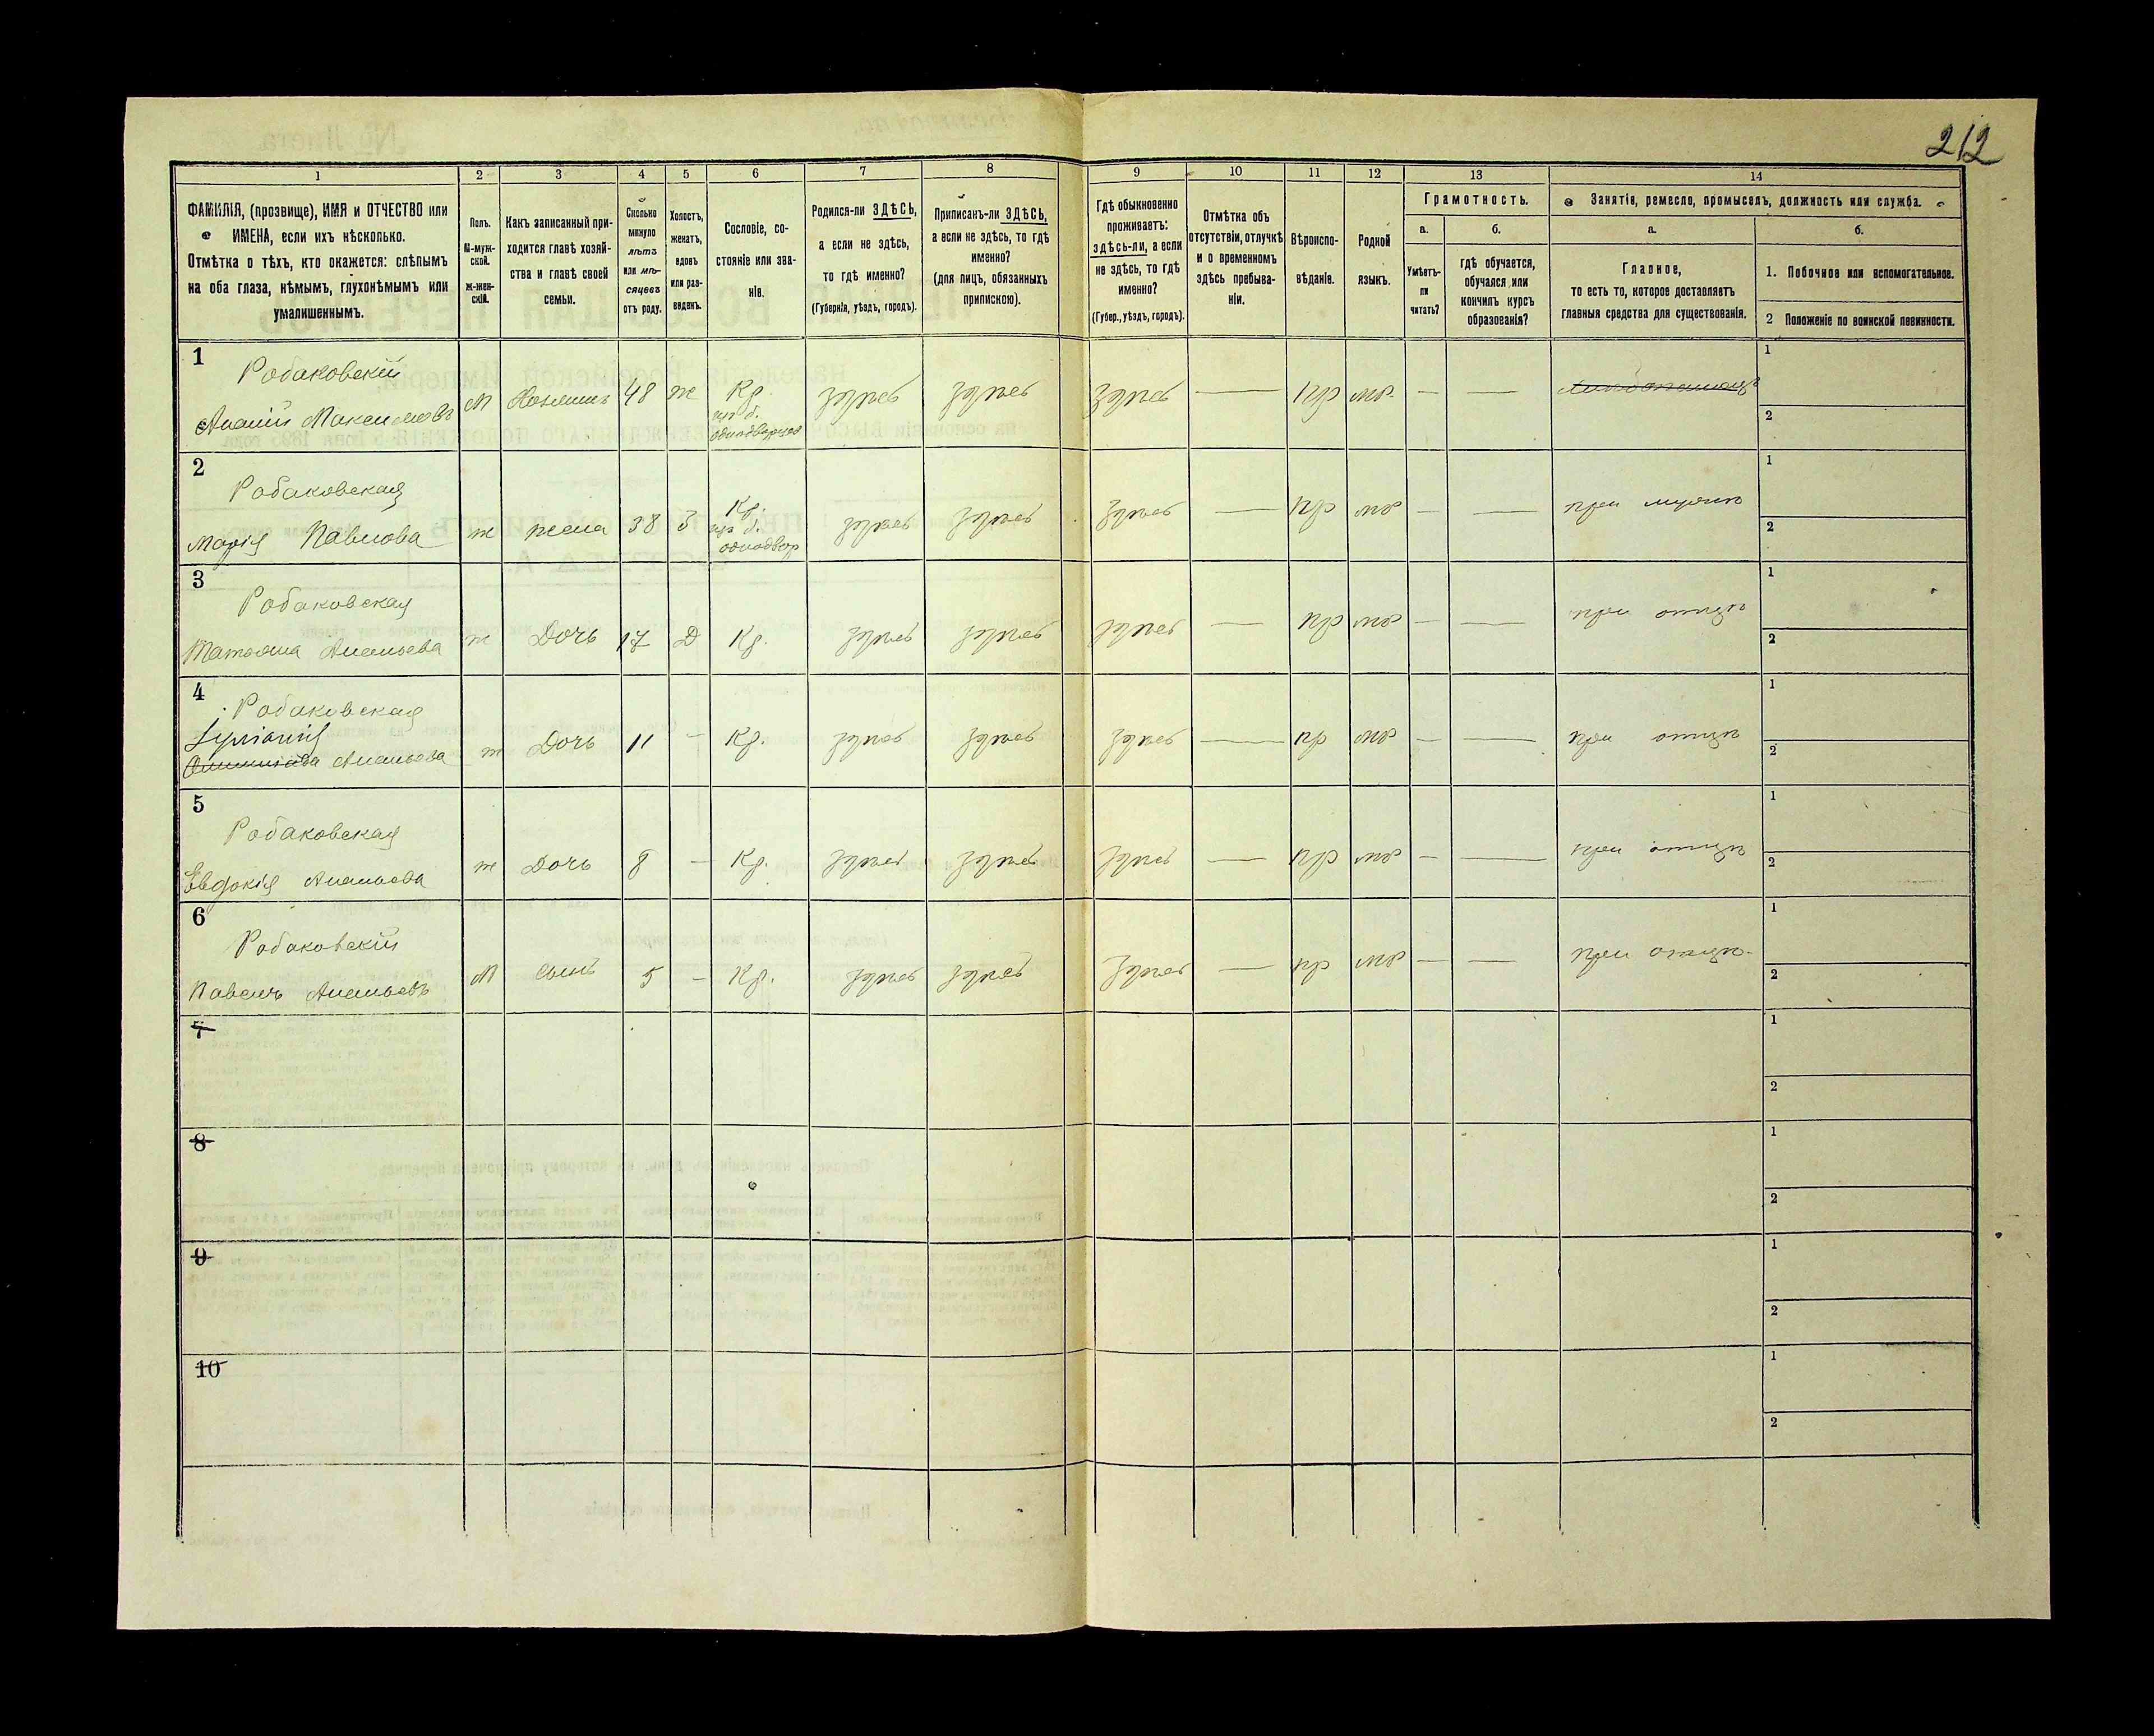 212
1 2 3 4 5 6 7 8 9 10 11 12 13 14
ФАМИЛІЯ, (прозвище), ИМЯ и ОТЧЕСТВО или
ИМЕНА, если ихъ нѣсколько.
Отмѣтка о тѣхъ, кто окажется: слѣпымъ
на оба глаза, нѣмымъ, глухонѣмымъ или
умалишеннымъ.
Полъ.
М-муж-
ской.
Ж-жен-
скій.
Какъ записанный при-
ходится главѣ хозяй-
ства и главѣ своей
семьи.
Сколько
минуло
лѣтъ
или мѣ-
сяцевъ
отъ роду.
Холостъ,
женатъ,
вдовъ
или раз-
веденъ.
Сословіе, со-
стояніе или зва-
ніе.
Родился-ли ЗДѢСЬ,
а если не здѣсь,
то гдѣ именно?
(Губернія, уѣздъ, городъ).
Приписанъ-ли ЗДѢСЬ,
а если не здѣсь, то гдѣ
именно?
(для лицъ, обязанныхъ
припискою).
Гдѣ обыкновенно
проживаетъ:
здѣсь-ли, а если
не здѣсь, то гдѣ
именно?
(Губер., уѣздъ, городъ).
Отмѣтка объ
отсутствіи, отлучкѣ
и о временномъ
здѣсь пребыва-
ніи.
Вѣроиспо-
вѣданіе.
Родной
языкъ.
Грамотность.
а.
Умѣетъ-
ли
читать?
б.
гдѣ обучается,
обучался или
кончилъ курсъ
образованія?
Занятіе, ремесло, промыселъ, должность или служба.
а.
Главное,
то есть то, которое доставляетъ
главныя средства для существованія.
б.
1. Побочное или вспомогательное.
2 Положеніе по воинской повинности.
1
Робаковскій
Ананій Максимовъ М Хозяинъ 48 ж Кр. здѣсь здѣсь здѣсь — — —
из б.
однодворцев
1
2
2
Робаковская
Марія Павлова ж жена 38 З Кр. здѣсь здѣсь здѣсь — — — при мужѣ
из б.
однодвор
1
2
3
Робаковская
Татьяна Ананьева ж Дочь 17 Д Кр. здѣсь здѣсь здѣсь — — — при отцѣ
1
2
4
Робаковская
Ананьева ж Дочь 11 - Кр. здѣсь здѣсь здѣсь — — — при отцѣ
1
2
5
Робаковская
Евдокія Ананьева ж Дочь 8 — Кр. здѣсь здѣсь здѣсь — — — при отцѣ
1
2
6
Робаковскій
Павелъ Ананьевъ М сынъ 5 - Кр. здѣсь здѣсь здѣсь — — — при отцѣ
1
2
7
1
2
8
1
2
9
1
2
10
1
2